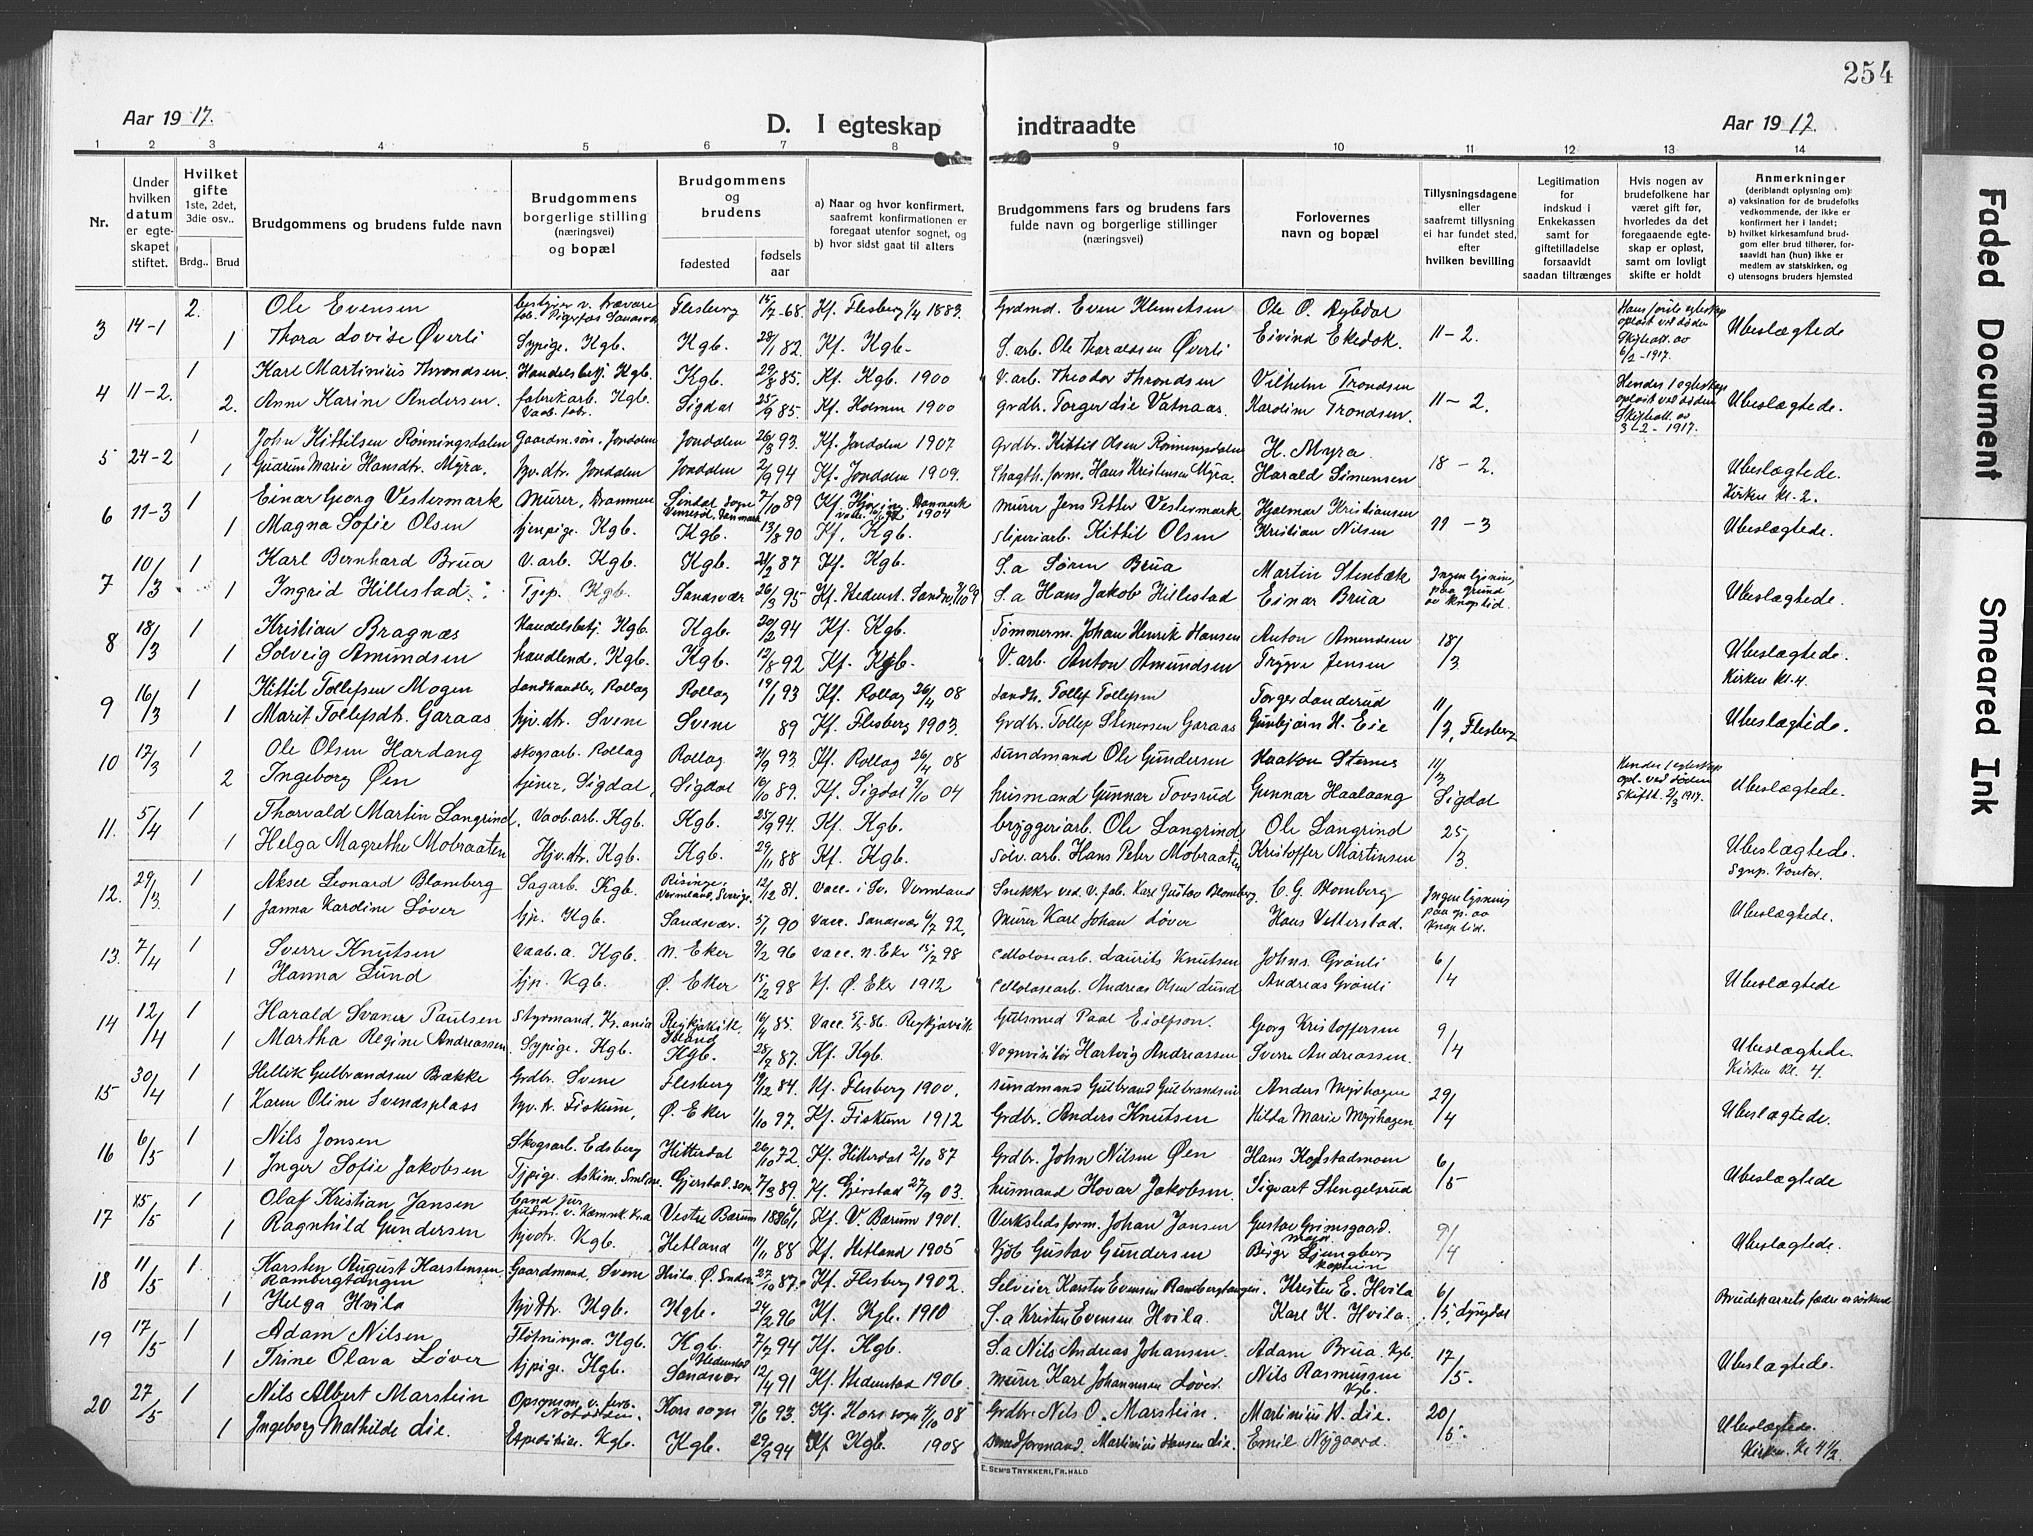 254
Aar 19 17.
D. I egteskap
indtraadte
Aar 19 17.
1 2 3 4 5 6 7 8 9 10 11 12 13 14
Nr.
Under hvilken datum er egte-skapet stiftet.
Hvilket gifte 1ste, 2det, 3die osv..
Brdg..
Brud
Brudgommens og brudens fulde navn
Brudgommens borgerlige stilling (næringsvei) og bopæl
Brudgommens og brudens
fødested
fødsels aar
a) Naar og hvor konfirmert, saafremt konfirmationen er foregaat utenfor sognet, og
b) hvor sidst gaat til alters
Brudgommens fars og brudens fars fulde navn og borgerlige stillinger (næringsvei)
Forlovernes navn og bopæl
Tillysningsdagene eller saafremt tillysning ei har fundet sted, efter hvilken bevilling
Legitimation for indskud i Enkekassen samt for giftetilladelse forsaavidt saadan tiltrænges
Hvis nogen av brudefolkene har været gift før, hvorledes da det foregaaende egte-skap er opløst, samt om lovligt skifte er holdt
Anmerkninger (deriblandt oplysning om): a) vaksination for de brudefolks vedkommende, der ikke er konfirmert her i landet; b) hvilket kirkesamfund brud-gom eller brud tilhører, for-saavidt han (hun) ikke er medlem av statskirken, og c) utensogns bruders hjemsted
3 14-1 2. Ole Evensen Flesberg 15/7-68. Kf. Flesberg 1/4 1883. Grdmd. Even Klemetsen Ole O. Dybdal Hans første egteskap opløst ved døden Skifteatt. av 6/2-1917.
1 Thora Lovise Øverli Sypige. Kgb. Kgb. 28/1 82. Kf. Kgb. S. arb. Ole Thoraldsen Øverli Eivind Ekedok. 11-2. Ubeslægtede
4 11-2. 1 Karl Martinius Throndsen. Handelsbetj. Kgb. Kgb. 29/8 85. Kf. Kgb. 1900 V. arb. Theodor Throndsen Vilhelm Trondsen Hendes 1 egteskap opløst ved døden Skifteatt. av 3-2-1917.
2. Anne Karine Andersen. fabrikarb. Kgb. Vaabfabr. Sigdal 25/9 85. Kf. Holmen 1900 Grdbr. Torger die Vatnaas. Karoline Trondsen. 11-2. Ubeslægtede.
5 24-2 1 John Kittilsen Rønningsdalen Gaardm.søn, Jondalen Jondalen 26/3 93. Kf. Jondalen 1907 Grdbr. Kittil Olsen Rønningsdalen H. Myra.
1 Gunrun Marie Hansdtr. Myra. Hjv. dtr. Jondalen Jondalen 2/9 94 Kf. Jondalen 1909. Hans Kristensen Myra. Harald Simensen 18-2. Ubeslægtede. Kirken kl. 2.
6 11-3 1 Einar Georg Vestermark Murer, Drammen Sindal sogn Danmark 7/10 89 Kf. Danmark 1904 Murer Jens Petter Vestermark Hjalmar Kristiansen
1 Magna Sofie Olsen tjenpige. Kgb. Kgb. 13/8 90 Kf. Kgb. Sliperiarb. Kittil Olsen Kristian Nilsen 11-3 Ubeslægtede.
7 10/3 1 Karl Bernhard Brua V. arb. Kgb. Kgb. 21/2 87 Kf. Kgb. S.a Søren Brua Martin Stenbæk
1 Ingrid Hillestad Tjp. Kgb. Sandsvær 26/3 95 Kf. Hedenst. Sandsv. S.a Hans Jakob Hillestad Einar Brua Ingen lysning paa grund av knap tid. Ubeslægtede.
8 18/3 1 Kristian Bragnæs Handelsbetj. Kgb. Kgb. 20/2 94 Kf. Kgb. Tømmerm. Johan Henrik Hansen Anton Amundsen
1 Solveig Amundsen handlende. Kgb. Kgb. 12/8 92 Kf. Kgb. V. arb. Anton Amundsen Trygve Jensen 18/3 Ubeslægtede. Kirken kl. 4.
9 16/3 1 Kittil Tollefsen Mogen Landhandler, Rollag Rollag 19/1 93 Kf. Rollag 26/4 08 Landh. Tollef Tollefsen Torger Landerud
1 Marit Tollefsdtr. Garaas Hjv. dtr. Svene Svene 89 Kf. Flesberg 1903. Grdbr. Tollef Stenersen Garaas Gunbjørn H. Eie 11/3, Flesberg Ubeslægtede.
10 17/3 1 Ole Olsen Hardang Skogsarb. Rollag Rollag 21/9 93 Kf. Rollag 26/4 08 Sundmand Ole Gundersen Haakon Sternes Hendes 1 egteskap opl. ved døden Skiftet. 2/3 1917.
2 Ingeborg Øen tjener, Sigdal, Sigdal 16/10 89. Kf. Sigdal 9/10 04 Husmand Gunnar Tovsrud Gunnar Haalaang 11/3 Sigdal Ubeslægtede.
11. 5/4 1 Thorvald Martin Langrind, Vaab.arb. Kgb. Kgb. 25/9 94. Kf. Kgb. bryggeriarb. Ole Langrind Ole Langrind
1 Helga Magrethe Mobraaten Hjv. dtr. Kgb. Kgb. 29/11 88 Kf. Kgb. Sølv. arb. Hans Peter Mobraaten Kristoffer Martinsen 25/3 Ubeslægtede.
12. 29/3 1 Aksel Leonard Blomberg Sagarb. Kgb. Vermland, Sverige. 12/12 81. Vacc. i Sv. Vermland Snekker ved v. fab. Karl Gustav Blomberg C. G. Blomberg
1 Janna Karoline Løver tjp. Kgb. Sandsvær. 5/1 90 Vacc. Sandsvær 6/7 92. Murer Karl Johan Løver Hans Vetterstad. Ingen lysning paa gr. av knap tid. Ubeslægtede.
13. 7/4 1 Sverre Knutsen Vaab. a. Kgb. N. Eker 9/2 96 Vacc. N. Eker 15/7 98 Cellolosearb. Laurits Knutsen Johns. Grønli
1 Hanna Lund tjp. Kgb. Ø. Eker 15/2 98 Kf. Ø. Eker 1912 Cellolosearb. Andreas Olsen Lund Andreas Grønli 6/4 Ubeslægtede
14 12/4 1 Harald Svaner Paulsen Styrmand, Kr.ania Reykjavik, Island 16/4 85. Vacc. Reykjavik Gulsmed Paal Eiolfson. Georg Kristoffersen
1 Martha Regine Andreassen. Sypige. Kgb. Kgb. 28/7 87. Kf. Kgb. Hartvig Andreassen Sverre Andreassen. 9/4 Ubeslægtede. Kirken kl. 4
15 30/4 1 Hellik Gulbrandsen Bække Grdbr. Svene Flesberg 19/12 84. Kf. Flesberg 1900. Sundmand Gulbrand Gulbrandsen Anders Myrhagen
1 Karen Oline Svenæsplass Hjv. d. Fiskum, Ø. Eker 1/10 97. Kf. Fiskum 1912 Grdbr. Anders Knutsen Hilda Marie Myrhagen. 29/4 Ubeslægtede.
16 6/5 1 Nils Jonsen Skogsarb. Edsberg Hitterdal 26/10 72. Kf. Hitterdal 2/10 87 Grdbr. John Nilsen Øen Hans Kolstadmoen
1 Inger Sofie Jakobsen Tjpige. Askim. Gjerstad. sogn 7/3 89. Kf. Gjerstad 27/9 03. husmand Hovar Jakobsen. Sigvart Stengelsrud 6/5 Ubeslægtede
17 15/5 1 Olaf Kristian Jansen Cand. jur. Vestre Bærum 1886 6/1 Kf. V. Bærum 1901. Verkstedsform. Johan Jansen Gustav Grimsgaard.
1 Ragnhild Gundersen Hjvdtr. Kgb. Hetland 11/11 88 Kf. Hetland 1905 Kjøb. Gustav Gundersen Birger Ljungberg kaptein 9/4 Ubeslægtede.
18 11/5 1 Karsten August Karstensen Rambergtangen Gaardmand, Svene Hvila, Ø. Sandsv. 27/10 87. Kf. Flesberg 1902. Selveier Karsten Evensen Rambergtangen. Kristen E. Hvila
1 Helga Hvila Hjvdtr. Kgb. Kgb. 24/2 96 Kf. Kgb. 1910 S.a Kristen Evensen Hvila. Karl K. Hvila. 6/5, Lyngdal Brudeparrets fædre er søskend
19 17/5 1 Adam Nilsen Fløtningsa. Kgb. Kgb. 7/7 94 Kf. Kgb. S.a Nils Andreas Johansen. Adam Brua. Kgb.
1 Trine Olava Løver tjpige. Kgb. Hedenstad Sandsvær 12/4 91 Kf. Hedenstad 1906. Murer Karl Johannesen Løver. Nils Rasmussen Kgb. 17/5. Ubeslægtede.
20 27/5 1 Nils Albert Marstein Opsynsm. v. Notodden. Hors sogn 7/6 93. Kf. Hors sogn 4/10 08 Grdbr. Nils O. Marstein. Martinius H. die.
1 Ingeborg Mathilde die. Kgb. Kgb. 29/9 94 Kf. Kgb. 1908 Smedformand. Martinius Hansen die. Emil Nygaard. 20/5. Ubeslægtede. Kirken. kl 4 1/2.
E. SEM'S TRYKKERI, FR.HALD
Faded Document
Smeared Ink